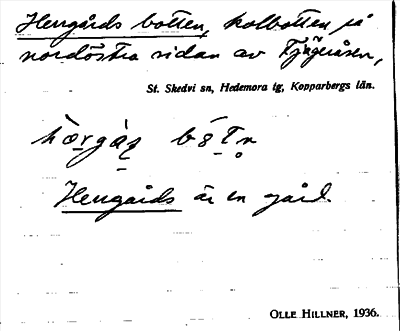 Herrgårds botten, kolbotten på
nordöstra sidan av
St. Skedvi sn, Hedemora tg, Kopparbergs län.
Herrgårds är en gård.
OLLE HILLNER, 1936.